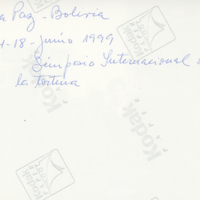 a Paz - Bolivia
1-18- junio 1999
Simposio Internacional s
la tortura
Kodak
Kodak